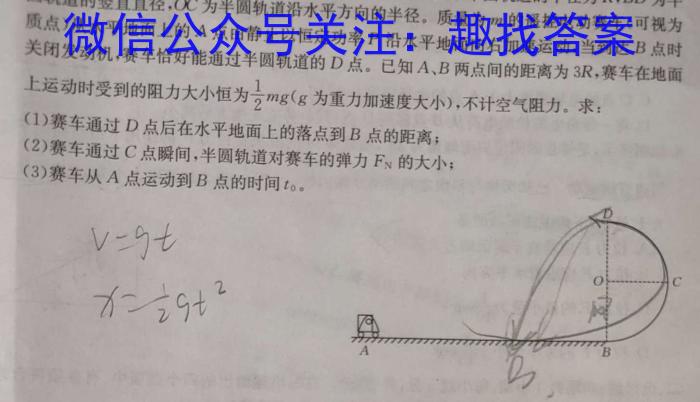 圆轨道的竖直直径,OC为半圆轨道沿水平方向的半径。质
微信公众号关注：趣找答案
质点
关闭发动机,赛车恰好能通过半圆轨道的D点。已知A、B两点间的距离为3R,赛车在地面
上运动时受到的阻力大小恒为1/2 mg(g为重力加速度大小),不计空气阻力。求:
(1)赛车通过D点后在水平地面上的落点到B点的距离;
(2)赛车通过C点瞬间,半圆轨道对赛车的弹力F_N的大小;
(3)赛车从A点运动到B点的时间t₀。
v=gt
x=1/2gt²
D
O
C
A
B